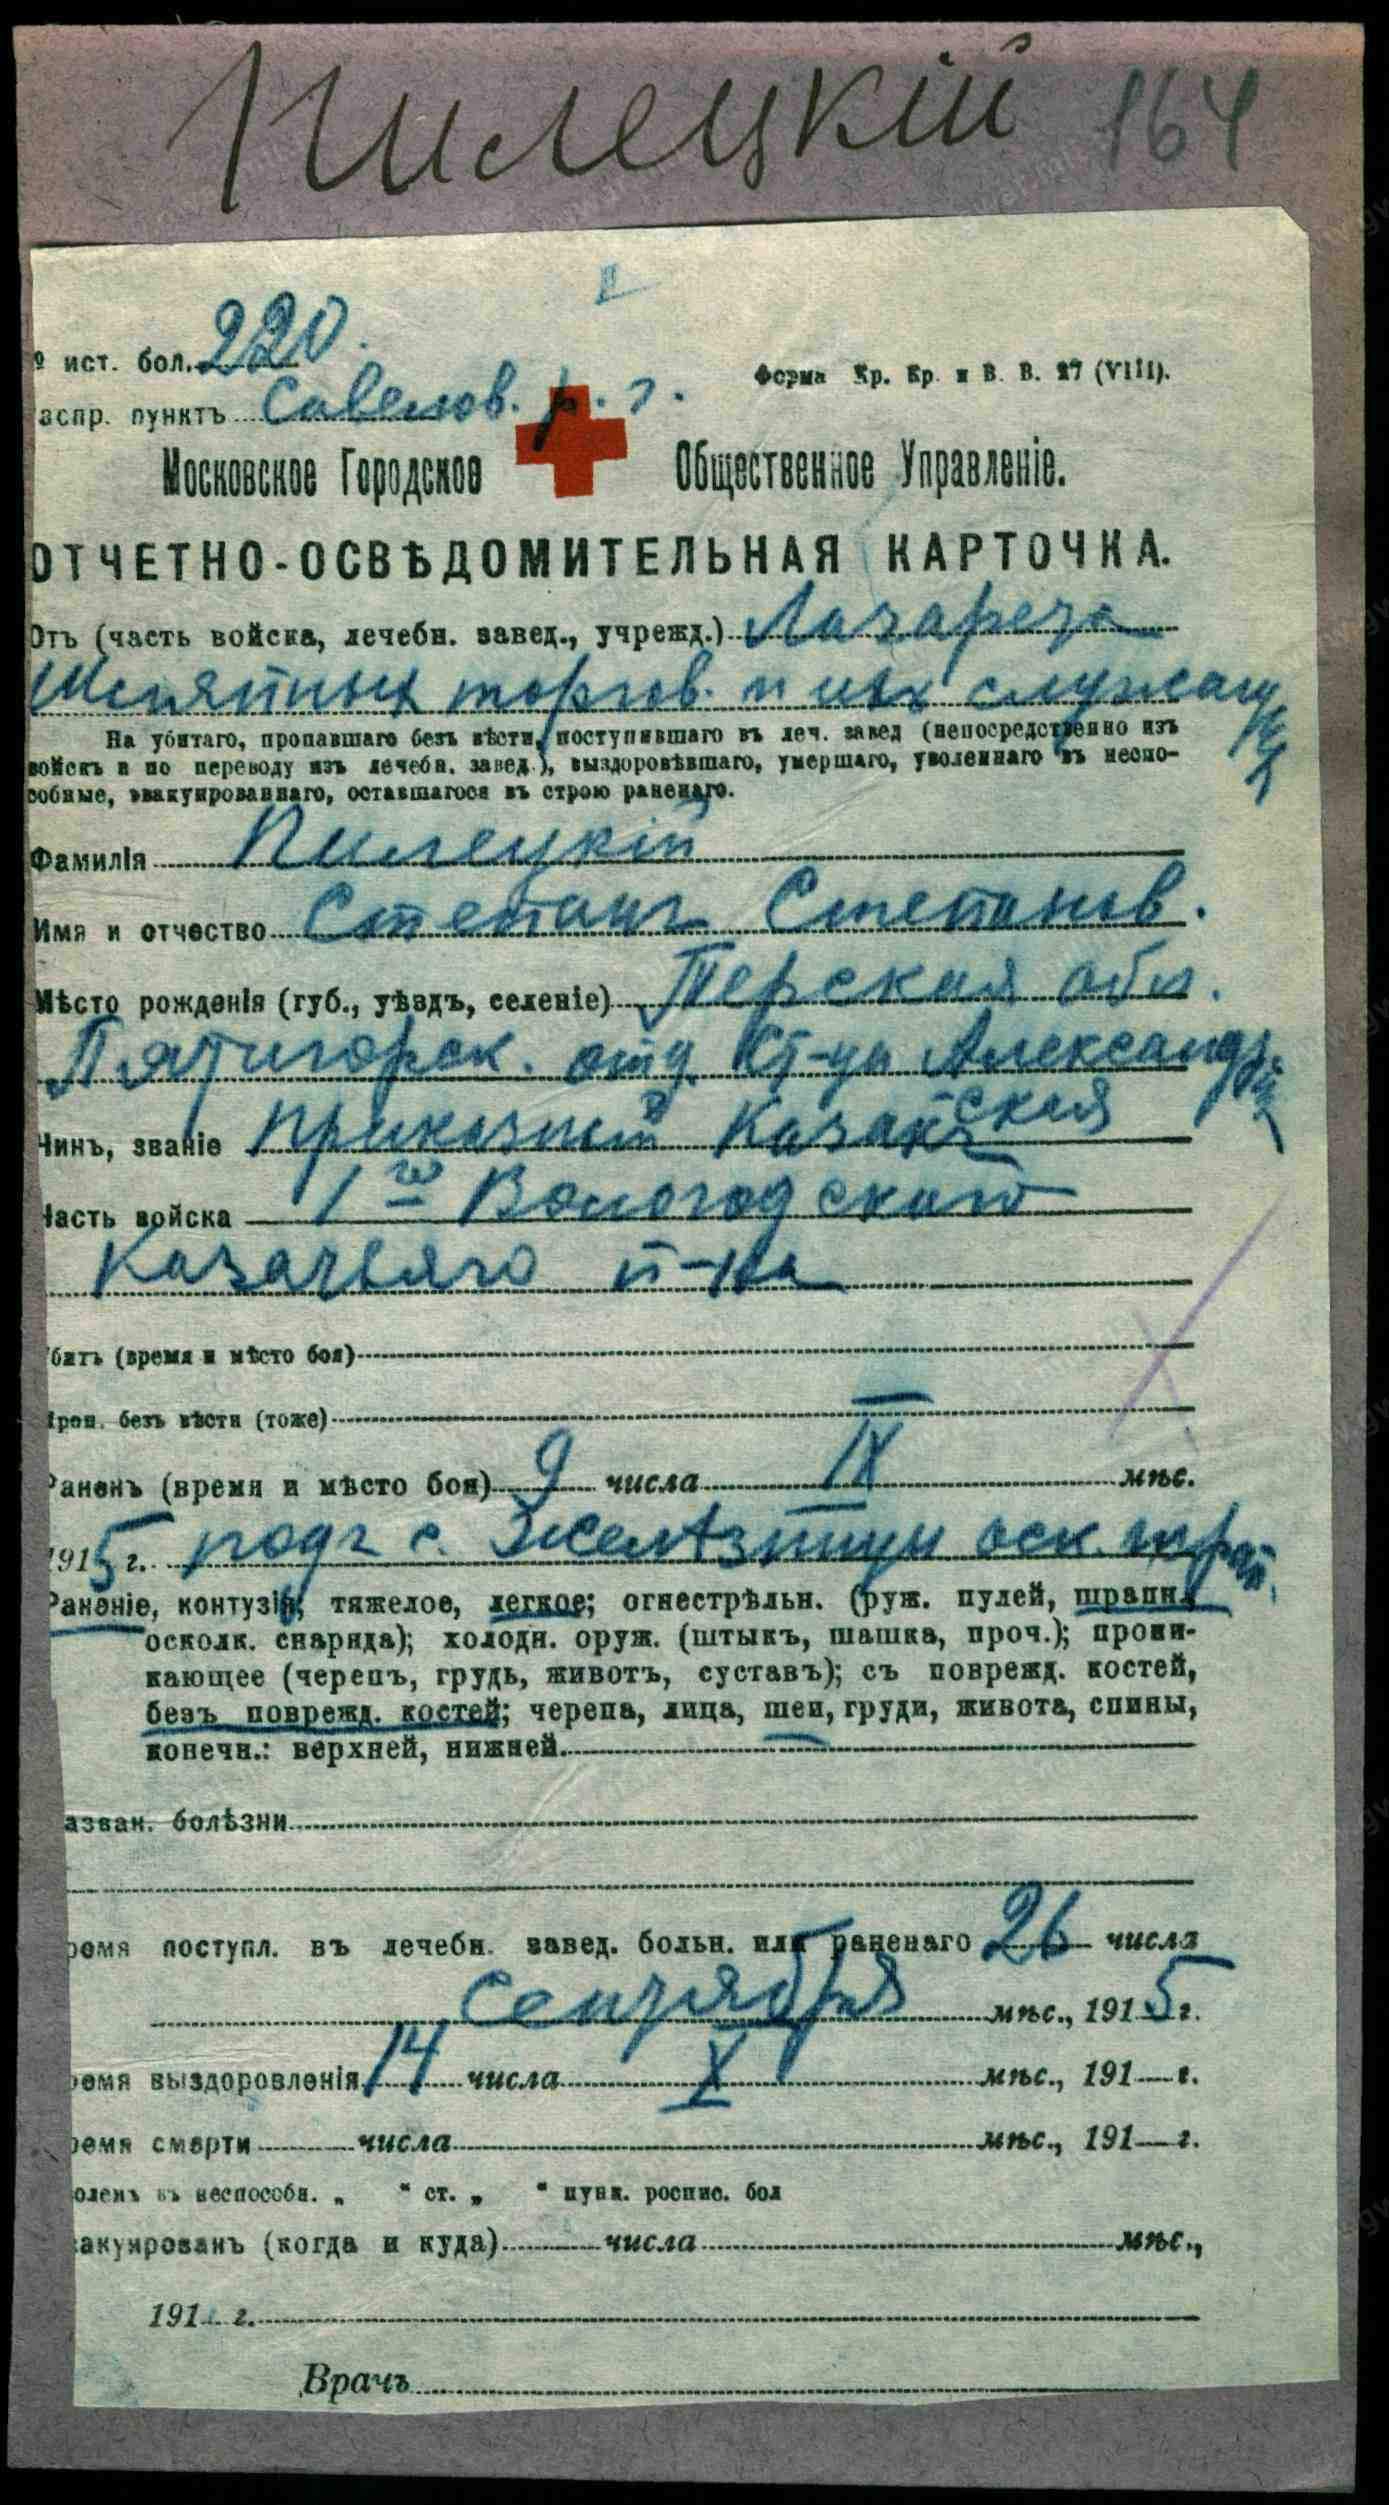 Пилецкій 164
№ ист. бол. 220.
распр. пунктъ Савелов. р. г.
Форма Кр. Кр. и В. В. 27 (VIII).
Московское Городское Общественное Управленіе.
ОТЧЕТНО-ОСВѢДОМИТЕЛЬНАЯ КАРТОЧКА.
Отъ (часть войска, лечебн. завед., учрежд.) Лазарета
торгов. и их служащ
На убитаго, пропавшаго безъ вѣсти, поступившаго въ леч. завед (непосредственно изъ
войскъ и по переводу изъ лечебн. завед.), выздоровѣвшаго, умершаго, уволеннаго въ неспо-
собные, эвакуированнаго, оставшагося въ строю раненаго.
Фамилія Пилецкій
Имя и отчество Степанъ Степанов.
Мѣсто рожденія (губ., уѣздъ, селеніе) Терская обл.
Пятигорск. отд. Ст-цы Александрій
ская
Чинъ, званіе Приказный Казакъ
Часть войска 1го Вологодскаго
Казачьяго п-ка
Убитъ (время и мѣсто боя)
Проп. безъ вѣсти (тоже)
Раненъ (время и мѣсто боя) 9 числа IX мѣс.
1915 г. подъ с. оск. шрап.
Раненіе, контузія; тяжелое, легкое; огнестрѣльн. (руж. пулей, шрапн.,
осколк. снаряда); холодн. оруж. (штыкъ, шашка, проч.); прони-
кающее (черепъ, грудь, животъ, суставъ); съ поврежд. костей,
безъ поврежд. костей; черепа, лица, шеи, груди, живота, спины,
конечн.: верхней, нижней.
азван. болѣзни
ремя поступл. въ лечебн. завед. больн. или раненаго 26 числа
сентября мѣс., 1915 г.
ремя выздоровленія 14 числа X мѣс., 191 г.
ремя смерти числа мѣс., 191 г.
воленъ въ неспособн. „ “ ст. „ “ пунк. роспис. бол
вакуированъ (когда и куда) числа мѣс.,
191 г.
Врачъ